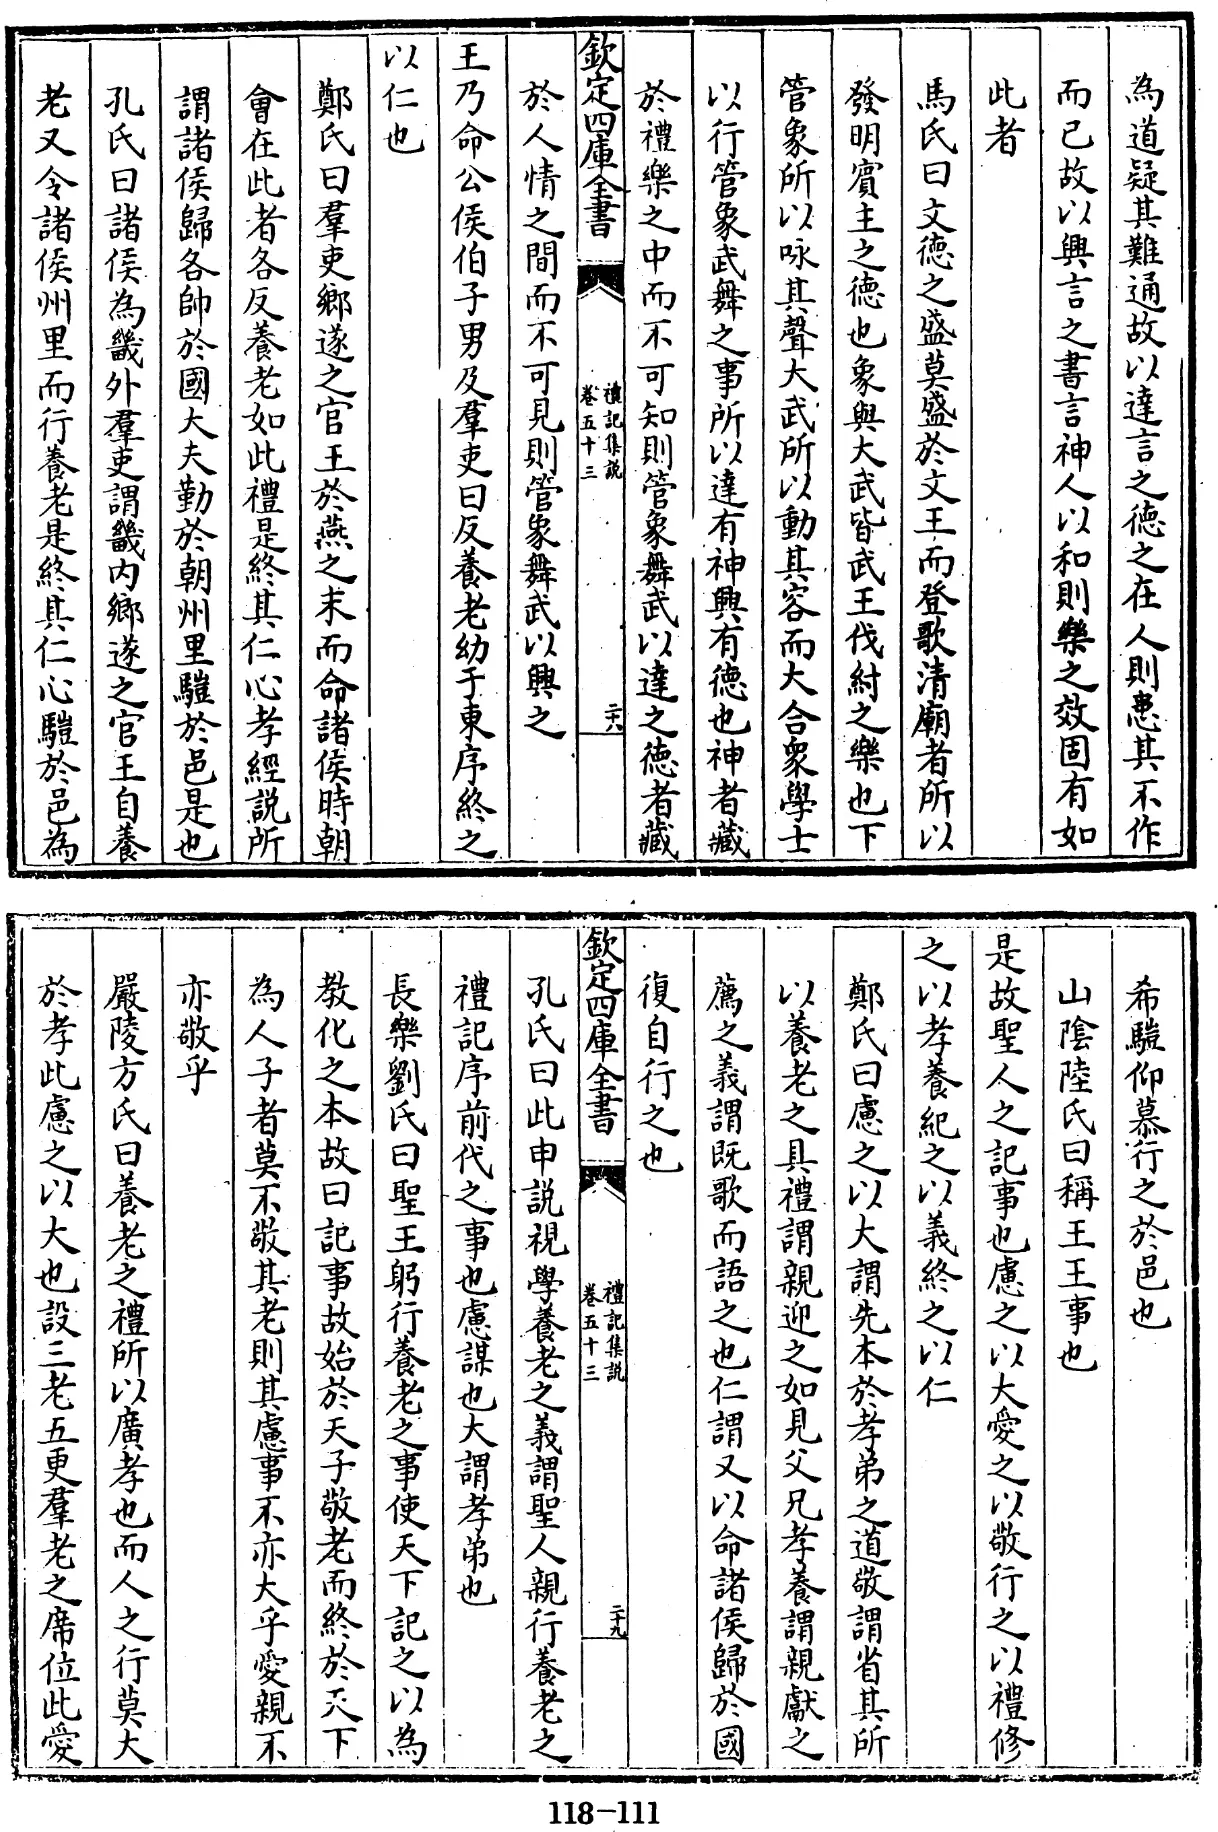 為道疑其難通故以達言之德之在人則患其不作
而已故以興言之書言神人以和則樂之效固有如
此者
馬氏曰文德之盛莫盛於文王而登歌清廟者所以
發明賓主之德也象與大武皆武王伐紂之樂也下
管象所以咏其聲大武所以動其容而大合衆學士
以行管象武舞之事所以達有神興有德也神者藏
於禮樂之中而不可知則管象舞武以達之德者藏
於人情之間而不可見則管象舞武以興之
王乃命公侯伯子男及羣吏曰反養老幼于東序終之
以仁也
鄭氏曰羣吏鄉遂之官王於燕之末而命諸侯時朝
會在此者各反養老如此禮是終其仁心孝經說所
謂諸侯歸各帥於國大夫勤於朝州里騹於邑是也
孔氏曰諸侯為畿外羣吏謂畿内鄉遂之官王自養
老又令諸侯州里而行養老是終其仁心騹於邑為
欽定四庫全書
禮記集說
卷五十三
二十八
希騹仰慕行之於邑也
山陰陸氏曰稱王王事也
是故聖人之記事也慮之以大愛之以敬行之以禮修
之以孝養紀之以義終之以仁
鄭氏曰慮之以大謂先本於孝弟之道敬謂省其所
以養老之具禮謂親迎之如見父兄孝養謂親獻之
薦之義謂既歌而語之也仁謂又以命諸侯歸於國
復自行之也
欽定四庫全書
禮記集說
卷五十三
二十九
孔氏曰此申説視學養老之義謂聖人親行養老之
禮記序前代之事也慮謀也大謂孝弟也
長樂劉氏曰聖王躬行養老之事使天下記之以為
教化之本故曰記事故始於天子敬老而終於天下
為人子者莫不敬其老則其慮事不亦大乎愛親不
亦敬乎
嚴陵方氏曰養老之禮所以廣孝也而人之行莫大
於孝此慮之以大也設三老五更羣老之席位此愛
118-111